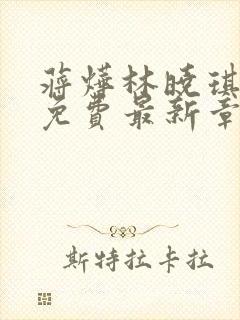 蒋烨林晓琪
免费最新章
斯特拉卡拉